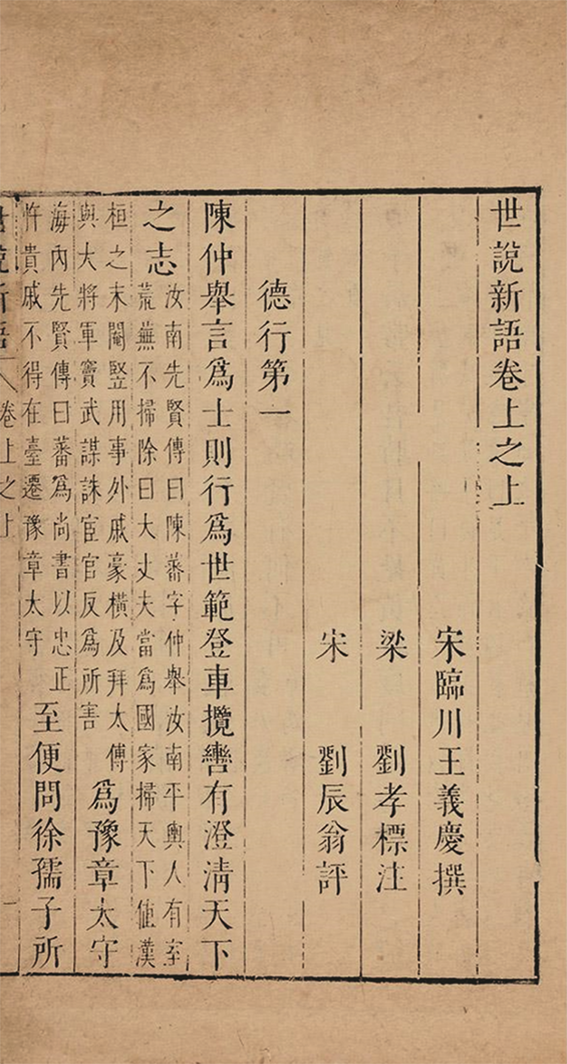 世說新語卷上之上
宋臨川王義慶撰
梁 劉孝標注
宋 劉辰翁評
德行第一
陳仲舉言爲士則行爲世範登車攬轡有澄清天下
之志
汝南先賢傳曰陳蕃字仲舉汝南平輿人有室
荒蕪不掃除曰大丈夫當爲國家掃天下值漢
桓之末閹豎用事外戚豪橫及拜太傅
與大將軍竇武謀誅宦官反爲所害
爲豫章太守
海內先賢傳曰蕃爲尚書以忠正
忤貴戚不得在臺遷豫章太守
至便問徐孺子所
世說新語 卷上之上 一